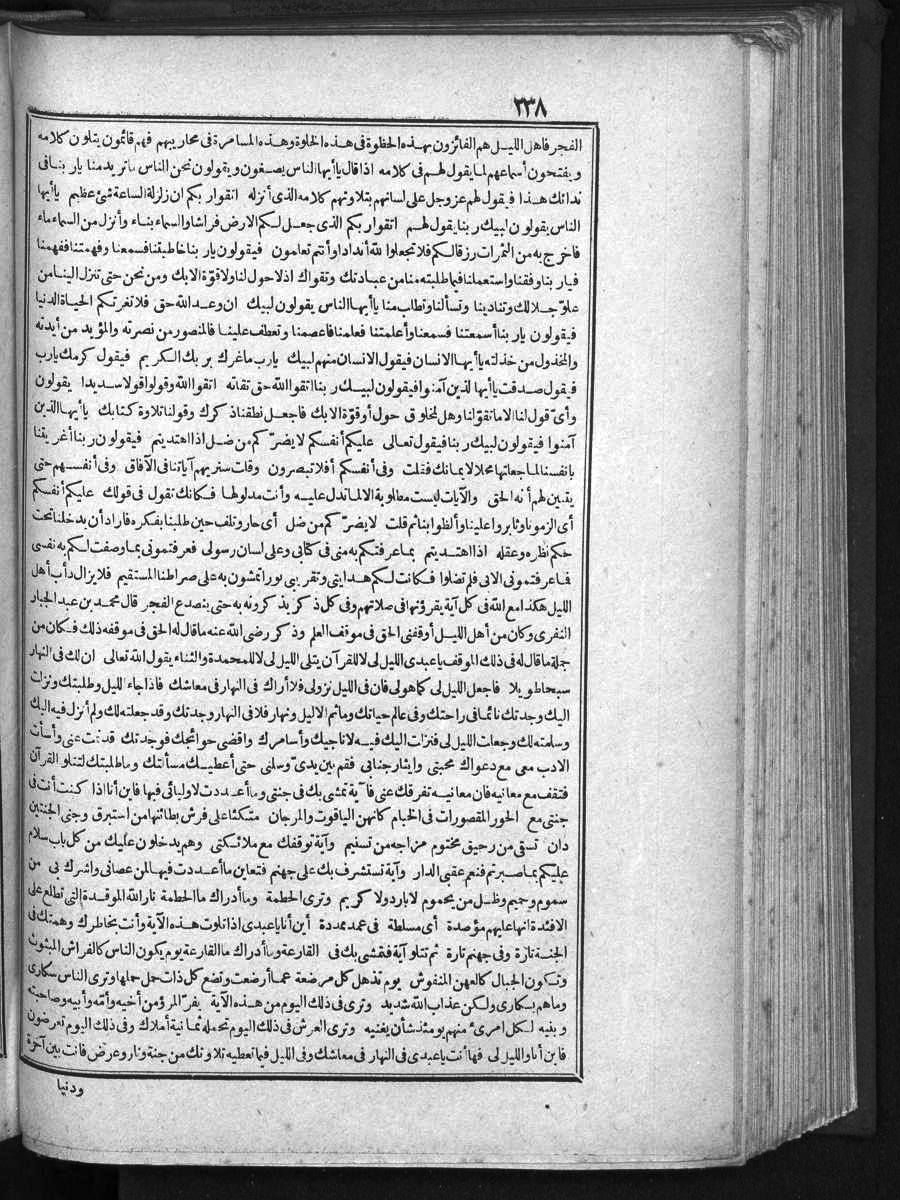 ٢٣٨
الفجر فاهل الليل هم الفائزون بهذه الحظوة فى هذه الخلوة وهذه المسامرة فى محاريبهم فهم قائمون يتلون كلامه
ويفتحون أسماعهم لما يقول لهم فى كلامه اذا قال ياأيها الناس يصغون ويقولون نحن الناس ماتريد منا ياربنا فى
ندائك هذا فيقول لهم عز وجل على لسانهم بتلاوتهم كلامه الذى أنزله اتقوا ربكم ان زلزلة الساعة شئ عظيم ياأيها
الناس يقولون لبيك ربنا يقول لهم اتقوا ربكم الذى جعل لكم الارض فراشا والسماء بناء وأنزل من السماء ماء
فاخرج به من الثمرات رزقا لكم فلا تجعلوا لله أندادا وأنتم تعلمون فيقولون ياربنا خاطبتنا فسمعنا وفهمتنا ففهمنا
فياربنا وفقنا واستعملنا فيما طلبته منا من عبادتك وتقواك اذ لا حول لنا ولا قوة الا بك ومن نحن حتى تنزل الينا من
علو جلالك وتنادينا وتسألنا وتطلب منا ياأيها الناس يقولون لبيك ان وعد الله حق فلا تغرنكم الحياة الدنيا
فيقولون ياربنا أسمعتنا فسمعنا وأعلمتنا فعلمنا فاعصمنا وتعطف علينا فالمنصور من نصرته والمؤيد من أيدته
والمخذول من خذلته ياأيها الانسان فيقول الانسان منهم لبيك يارب ماغرك بربك الكريم فيقول كرمك يارب
فيقول صدقت ياأيها الذين آمنوا فيقولون لبيك ربنا اتقوا الله حق تقاته اتقوا الله وقولوا قولا سديدا يقولون
وأى قول لنا الا ماتقولنا وهل لمخلوق حول أوقوة الا بك فاجعل نطقنا ذكرك وقولنا تلاوة كتابك ياأيها الذين
آمنوا فيقولون لبيك ربنا فيقول تعالى عليكم أنفسكم لا يضركم من ضل اذا اهتديتم فيقولون ربنا أغريتنا
بانفسنا لما جعلتها محلا لايمانك فقلت وفى أنفسكم أفلا تبصرون وقلت سنريهم آياتنا فى الآفاق وفى أنفسهم حتى
يتبين لهم أنه الحق والآيات ليست مطلوبة الا لما تدل عليه وأنت مدلولها فكانك تقول فى قولك عليكم أنفسكم
أى الزمونا وثابروا علينا وألظوا بنا ثم قلت لا يضركم من ضل أى حار وتلف حين طلبنا بفكره فاراد أن يدخلنا تحت
حكم نظره وعقله اذا اهتديتم بما عرفتكم به منى فى كتابى وعلى لسان رسولى فعرفتمونى بما وصفت لكم به نفسى
فما عرفتمونى الا بى فلم تضلوا فكانت لكم هدايتى وتقريبى نورا تمشون به على صراطنا المستقيم فلا يزال دأب أهل
الليل هكذا مع الله فى كل آية يقرؤنها فى صلاتهم وفى كل ذكر يذكرونه به حتى ينصدع الفجر قال محمد بن عبد الجبار
النفرى وكان من أهل الليل أوقفنى الحق فى موقف العلم وذكر رضى الله عنه ماقال له الحق فى موقفه ذلك فكان من
جملة ماقال له فى ذلك الموقف ياعبدى الليل لى لا للقرآن يتلى الليل لى لا للمحمدة والثناء يقول الله تعالى ان لك فى النهار
سبحا طويلا فاجعل الليل لى كما هو لى فان فى الليل نزولى فلا أراك فى النهار فى معاشك فاذا جاء الليل وطلبتك ونزلت
اليك وجدتك نائما فى راحتك وفى عالم حياتك وماثم الا ليل ونهار فلا فى النهار وجدتك وقد جعلته لك ولم أنزل فيه اليك
وسلمته لك وجعلت الليل لى فنزلت اليك فيه لاناجيك وأسامرك واقضى حوائجك فوجدتك قد نمت عنى وأسأت
الادب معى مع دعواك محبتى وايثار جنابى فقم بين يدى وسلنى حتى أعطيك مسألتك وماطلبتك لتتلو القرآن
فتقف مع معانيه فان معانيه تفرقك عنى فآية تمشى بك فى جنتى وما أعددت لاوليائى فيها فاين أنا اذا كنت أنت فى
جنتى مع الحور المقصورات فى الخيام كانهن الياقوت والمرجان متكئا على فرش بطائنها من استبرق وجنى الجنتين
دان تسقى من رحيق مختوم مزاجه من تسنيم وآية توقفك مع ملائكتى وهم يدخلون عليك من كل باب سلام
عليكم بما صبرتم فنعم عقبى الدار وآية تستشرف بك على جهنم فتعاين ما أعددت فيها لمن عصانى واشرك بى من
سموم وحميم وظل من يحموم لا بارد ولا كريم وترى الحطمة وما أدراك ماالحطمة نار الله الموقدة التى تطلع على
الافئدة انها عليهم مؤصدة أى مسلطة فى عمد ممددة أين أنا ياعبدى اذا تلوت هذه الآية وأنت بخاطرك وهمتك فى
الجنة تارة وفى جهنم تارة ثم تتلو آية فتمشى بك فى القارعة وما أدراك ماالقارعة يوم يكون الناس كالفراش المبثوث
وتكون الجبال كالعهن المنفوش يوم تذهل كل مرضعة عما أرضعت وتضع كل ذات حمل حملها وترى الناس سكارى
وماهم بسكارى ولكن عذاب الله شديد وترى فى ذلك اليوم من هذه الآية يفر المرؤ من أخيه وأمه وأبيه وصاحبته
وبنيه لكل امرئ منهم يومئذ شأن يغنيه وترى العرش فى ذلك اليوم تحمله ثمانية أملاك وفى ذلك اليوم تعرضون
فاين أنا والليل لى فها أنت ياعبدى فى النهار فى معاشك وفى الليل فيما تعطيه تلاوتك من جنة ونار وعرض فانت بين آخرة
ودنيا